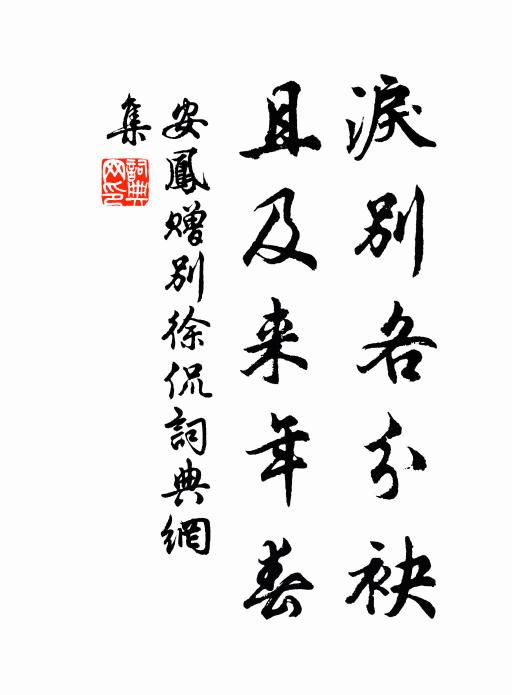 淚別各分袂
且及来年春
安鳳贈別徐侃詞典網
集
詞典
网印